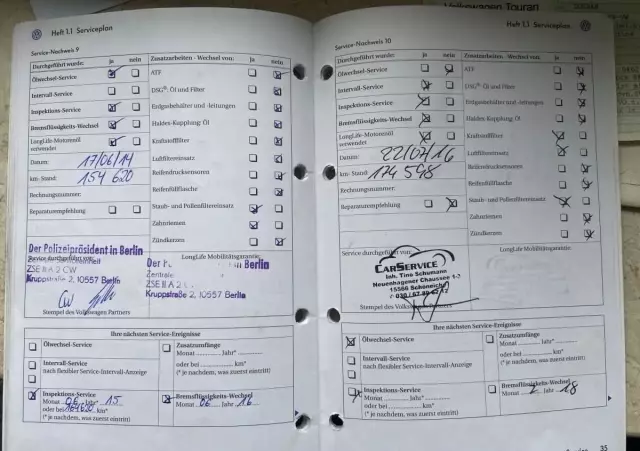 Volkswagen Touran
Heft 1.1 Serviceplan
Service-Nachweis 9
Durchgeführt wurde: ja nein
Ölwechsel-Service
Intervall-Service
Inspektions-Service
Bremsflüssigkeits-Wechsel
LongLife-Motorenöl
verwendet
Datum: 17/06/14
km-Stand: 154 620
Rechnungsnummer:
Reparaturempfehlung
Zusatzarbeiten - Wechsel von: ja nein
ATF
DSG®: Öl und Filter
Erdgasbehälter und -leitungen
Haldex-Kupplung: Öl
Kraftstofffilter
Luftfiltereinsatz
Reifendrucksensoren
Reifenfüllflasche
Staub- und Pollenfiltereinsatz
Zahnriemen
Zündkerzen
LongLife Mobilitätsgarantie:
Der Polizeipräsident in Berlin
Service durchgeführt von:
ZSE II A 2 CW
Kruppstraße 2, 10557 Berlin
in Berlin
Zentrale
ZSE II A 2
Kruppstraße 2, 10557 Berlin
CW
Stempel des Volkswagen Partners
Ihre nächsten Service-Ereignisse
Ölwechsel-Service
Intervall-Service
nach flexibler Service-Intervall-Anzeige
Inspektions-Service
Monat 06 Jahr* 15
oder bei 184620 km*
(* je nachdem, was zuerst eintritt)
Zusatzumfänge
Monat Jahr*
oder bei km*
(* je nachdem, was zuerst eintritt)
Bremsflüssigkeits-Wechsel
Monat 06 Jahr 16
Heft 1.1 Serviceplan
Service-Nachweis 10
Durchgeführt wurde: ja nein
Ölwechsel-Service
Intervall-Service
Inspektions-Service
Bremsflüssigkeits-Wechsel
LongLife-Motorenöl
verwendet
Datum: 22/07/16
km-Stand: 174 548
Rechnungsnummer:
Reparaturempfehlung
Zusatzarbeiten - Wechsel von: ja nein
ATF
DSG®: Öl und Filter
Erdgasbehälter und -leitungen
Haldex-Kupplung: Öl
Kraftstofffilter
Luftfiltereinsatz
Reifendrucksensoren
Reifenfüllflasche
Staub- und Pollenfiltereinsatz
Zahnriemen
Zündkerzen
Service durchgeführt von:
LongLife Mobilitätsgarantie:
CARSERVICE
Inh. Tino Schumann
Neuenhagener Chaussee 1-2
15566 Schöneiche
Stempel des Volkswagen Partners
Ihre nächsten Service-Ereignisse
Ölwechsel-Service
Intervall-Service
nach flexibler Service-Intervall-Anzeige
Inspektions-Service
Monat Jahr*
oder bei km*
(* je nachdem, was zuerst eintritt)
Zusatzumfänge
Monat Jahr*
oder bei km*
(* je nachdem, was zuerst eintritt)
Bremsflüssigkeits-Wechsel
Monat Jahr 18
35